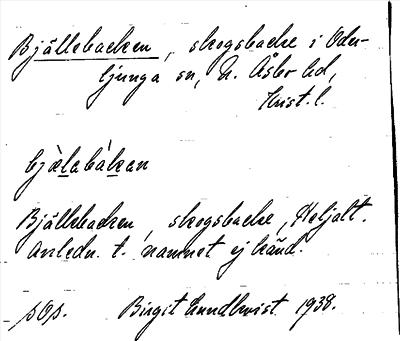 Bjällebacken, skogsbacke i Oder-
ljunga sn, N. Åsbo hd,
Krist. l.
bjæ̀labákan
Bjällebacken, skogsbacke, Heljalt.
Anledn. t. namnet ej känd.
sOs. Birgit Lundkvist 1938.